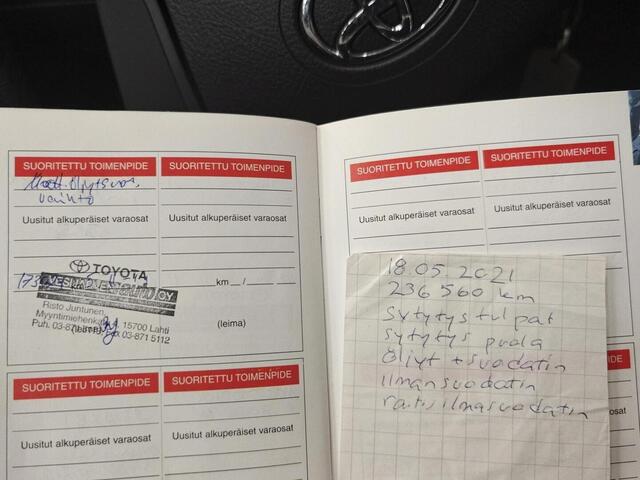 SUORITETTU TOIMENPIDE
Uusitut alkuperäiset varaosat
TOYOTA
OY
Risto Juntunen
15700 Lahti
03-871 5112
SUORITETTU TOIMENPIDE
Uusitut alkuperäiset varaosat
km / /
(leima)
SUORITETTU TOIMENPIDE
Uusitut alkuperäiset varaosat
SUORITETTU TOIMENPIDE
Uusitut alkuperäiset varaosat
SUORITETTU TOIMENPIDE
Uusitut alkuperäiset varaosat
SUORITETTU TOIMENPIDE
Uusitut alkuperäiset varaosat
18.05.2021
236 560 km
Sytytystulpat
sytytys puola
Öljyt + suodatin
ilmansuodatin
raitisilmasuodatin